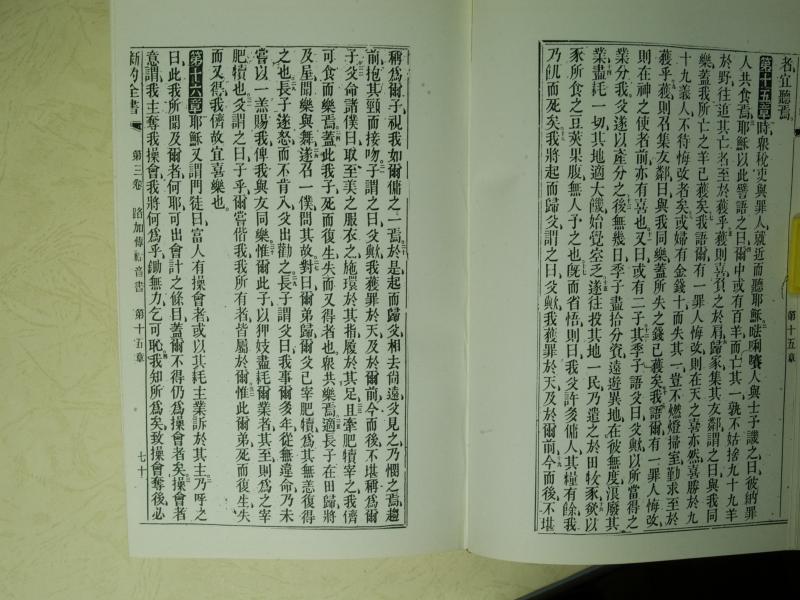 名宜聽焉
第十五章時衆稅吏與罪人就近而聽耶穌𠵽唎㘔人與士子譏之曰彼納罪
人共食焉耶穌以此譬語之曰爾中或有百羊而亡其一孰不姑捨九十九羊
於野往追其亡者至於獲乎獲則喜負之於肩歸家集其友鄰謂之曰與我同
樂蓋我所亡之羊已獲矣我語爾有一罪人悔改則在天之喜亦然喜勝於九
十九義人不待悔改者矣或婦有金錢十而失其一豈不燃燈掃室勤求至於
獲乎獲則召集友鄰曰與我同樂蓋所失之錢已獲矣我語爾有一罪人悔改
則在神之使者前亦有喜也又曰或有二子其季子語父曰父歟以所當得之
業分我父遂以產分之後無幾日季子盡拾分資遠遊異地在彼無度浪廢其
業盡耗一切其地適大饑始覺空乏遂往投其地一民乃遣之於田牧豕欲以
豕所食之豆莢果腹無人予之也旣而省悟則曰我父許多傭人其糧有餘我
乃飢而死矣我將起而歸父謂之曰父歟我獲罪於天及於爾前今而後不堪
第十五章
稱爲爾子視我如爾傭之一焉於是起而歸父相去尚遠父見之乃憫之焉趨
前抱其頸而接吻子謂之曰父歟我獲罪於天及於爾前今而後不堪稱爲爾
子父命諸僕曰取至美之服衣之施環於其指履於其足且牽肥犢宰之我儕
可食而樂焉蓋此我子死而復生失而又得者也衆共樂焉適長子在田歸將
及屋聞樂與舞遂召一僕問其故對曰爾弟歸爾父已宰肥犢爲其無恙復得
之也長子遂怒而不肯入父出勸之長子謂父曰我事爾多年從無違命乃未
嘗以一羔賜我俾我與友同樂惟爾此子以狎妓盡耗爾業者其至則爲之宰
肥犢也父謂之曰子乎爾嘗偕我我所有者皆屬於爾惟此爾弟死而復生失
而又得我儕故宜喜樂也
第十六章耶穌又謂門徒曰富人有操會者或以其耗主業訴於其主乃呼之
曰此我所聞及爾者何耶可出會計之條目蓋爾不得仍爲操會者矣操會者
意謂我主奪我操會我將何爲乎鋤無力乞可恥我知所爲矣致操會奪後必
新約全書 第三卷 路加傳福音書 第十五章 七十